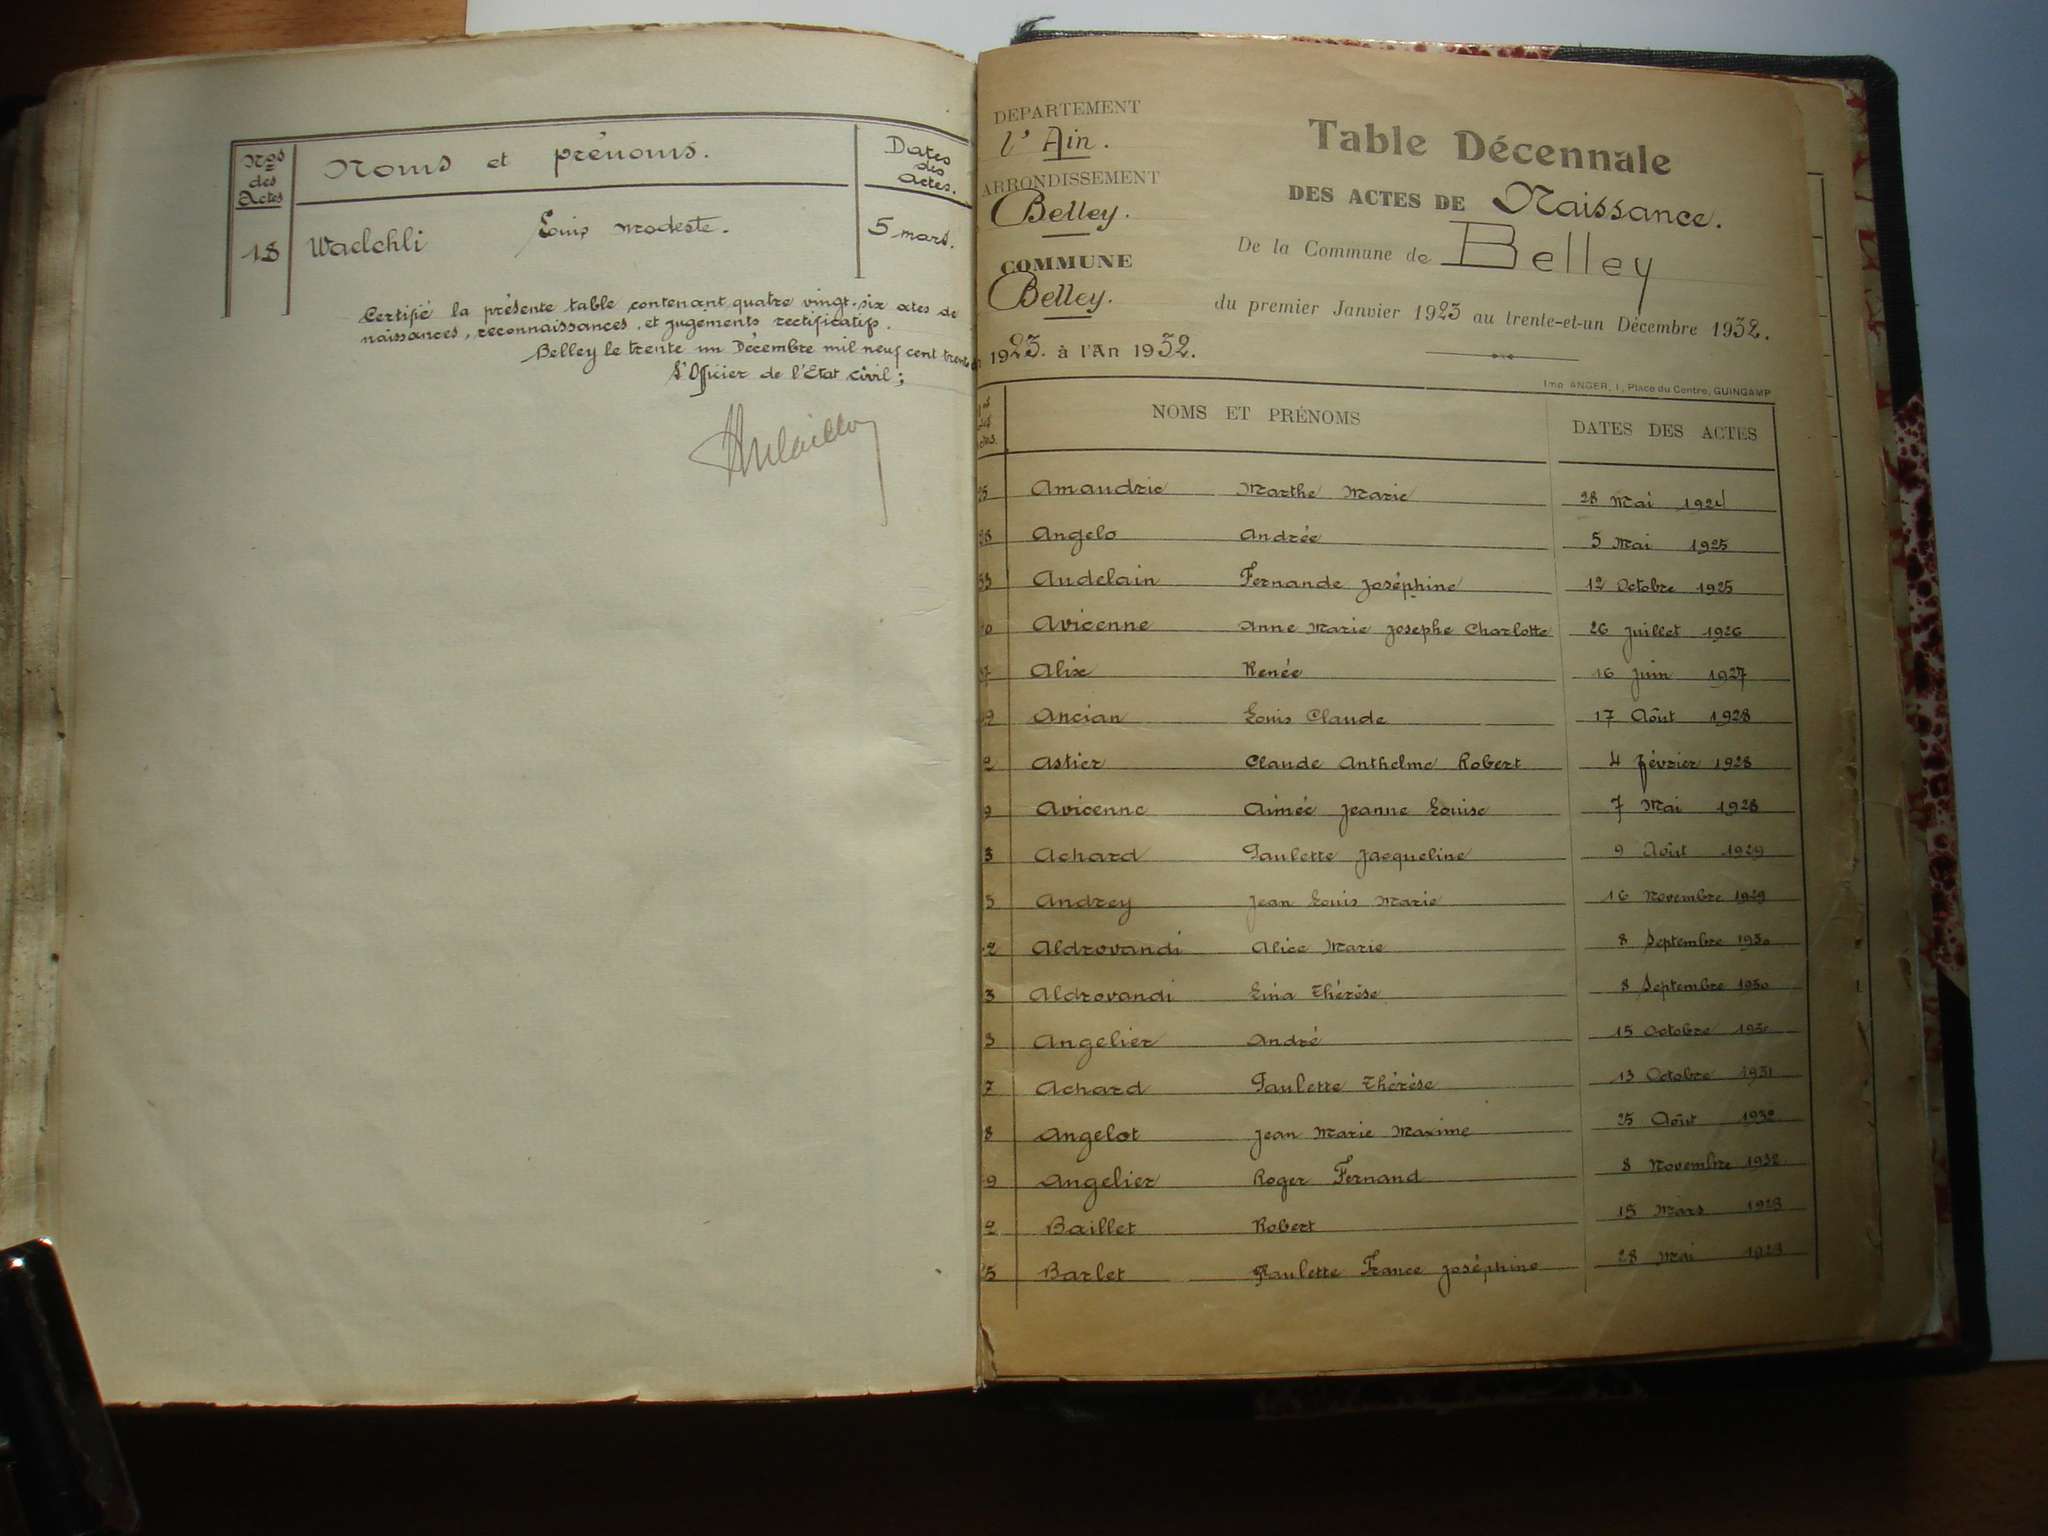 Nos des Actes
Noms et prénoms.
Dates des actes.
18 Waelchli Louis Modeste. 5 mars.
Certifié la présente table contenant quatre vingt-six actes de
naissances, reconnaissances, et jugements rectificatifs.
Belley le trente un Décembre mil neuf cent trente
L'Officier de l'Etat civil;
DEPARTEMENT
l'Ain.
ARRONDISSEMENT
Belley.
COMMUNE
Belley.
1923. à l'An 1932.
Table Décennale
DES ACTES DE Naissance.
De la Commune de Belley
du premier Janvier 1923 au trente-et-un Décembre 1932.
Imp. ANGER, 1, Place du Centre, GUINGAMP
NOMS ET PRÉNOMS DATES DES ACTES
Amaudric Marthe Marie 28 Mai 1924
Angelo Andrée 5 Mai 1925
Audelain Fernande Joséphine 12 Octobre 1925
Avicenne Anne Marie Josephe Charlotte 26 Juillet 1926
Alix Renée 16 Juin 1927
Ancian Louis Claude 17 Août 1928
Astier Claude Anthelme Robert 4 Février 1928
Avicenne Aimée Jeanne Louise 7 Mai 1928
Achard Paulette Jacqueline 9 Août 1929
Andrey Jean Louis Marie 16 Novembre 1929
Aldrovandi Alice Marie 8 Septembre 1930
Aldrovandi Lina Thérèse 8 Septembre 1930
Angelier André 15 Octobre
Achard Paulette Thérèse 13 Octobre 1931
Angelot Jean Marie Maxime 25 Août 1932
Angelier Roger Fernand 8 Novembre 1932
Baillet Robert 15 Mars 1923
Barlet Paulette France Joséphine 28 Mai 1923